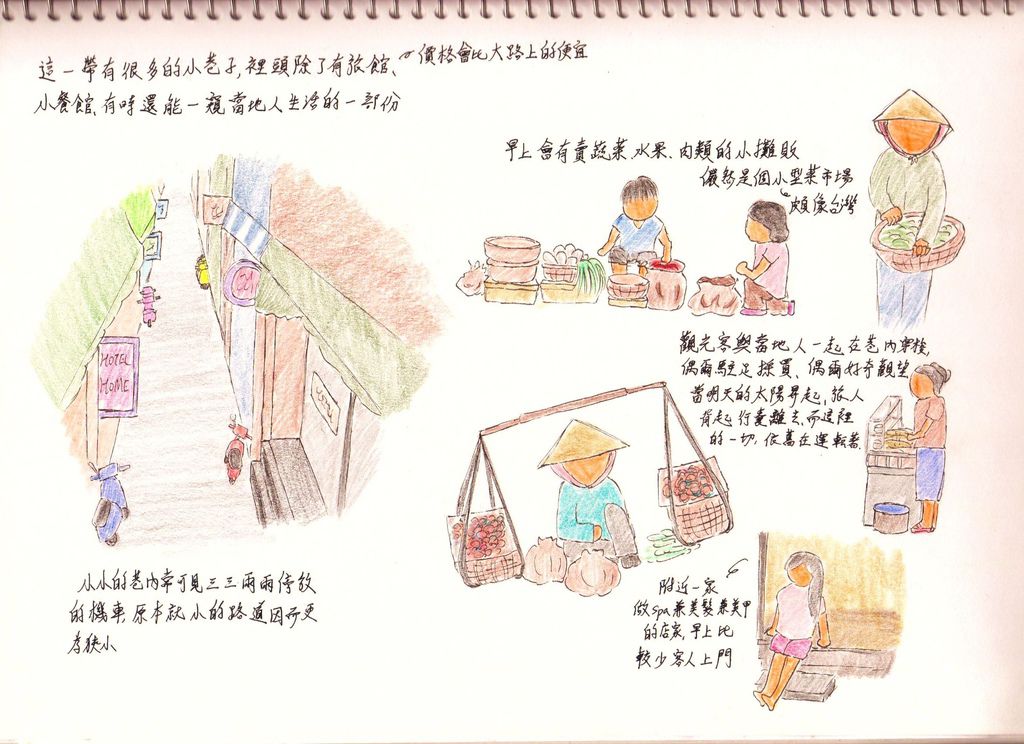 這一帶有很多的小巷子,裡頭除了有旅館、
價格會比大路上的便宜
小餐館、有時還能一窺當地人生活的一部份
早上會有賣蔬菜、水果、肉類的小攤販
儼然是個小型菜市場
頗像台灣
HOTEL
HOME
觀光客與當地人一起在巷內穿梭,
偶爾駐足採買、偶爾好奇觀望
當明天的太陽昇起,旅人
背起行囊離去,而這裡
的一切,依舊在運轉著
小小的巷內常可見三三兩兩停放
的機車,原本就小的路道因而更
為狹小
附近一家
做spa兼美髮兼美甲
的店家,早上比
較少客人上門